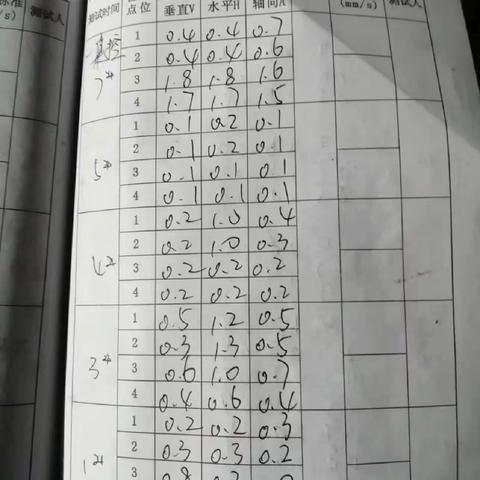 测试时间 点位 垂直V 水平H 轴向A (mm/s) 测试人
真空 1 0.4 0.4 0.7
2 0.4 0.4 0.6
7# 3 1.8 1.8 1.6
4 1.7 1.7 1.5
1 0.1 0.2 0.1
2 0.1 0.2 0.1
5# 3 0.1 0.1 0.1
4 0.1 0.1 0.1
1 0.2 1.0 0.4
2 0.2 1.0 0.3
4# 3 0.2 0.2 0.2
4 0.2 0.2 0.2
1 0.5 1.2 0.5
2 0.3 1.3 0.5
3# 3 0.6 1.0 0.7
4 0.4 0.6 0.4
1 0.2 0.2 0.3
2 0.3 0.3 0.2
1# 3